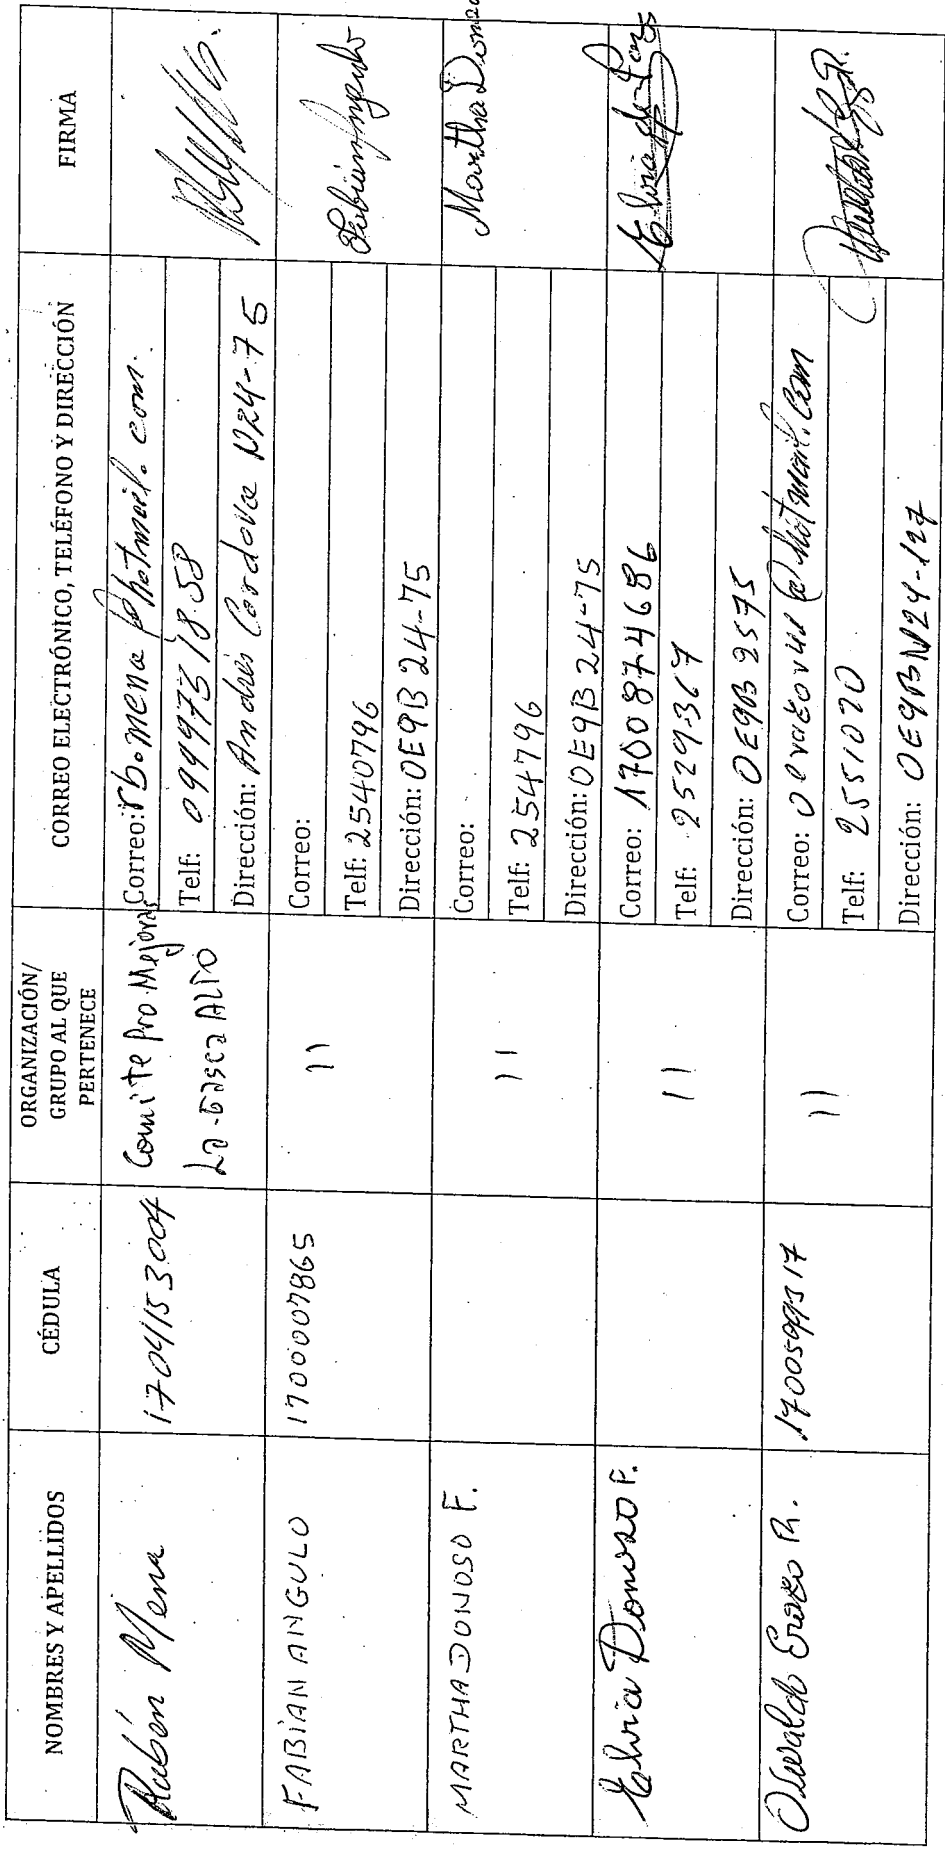 NOMBRES Y APELLIDOS
CÉDULA
ORGANIZACIÓN/
GRUPO AL QUE
PERTENECE
CORREO ELECTRÓNICO, TELÉFONO Y DIRECCIÓN
FIRMA
Rubén Mena
1704153004
Comite Pro Mejoras
La-Gasca ALTO
Correo: rbomena@hotmail.com.
Telf: 099973 18 58
Dirección: Andrés Cordova N24-75
FABIAN ANGULO
1700007865
11
Correo:
Telf: 2540796
Dirección: OE9B 24-75
Fabián Angulo
MARTHA DONOSO F.
11
Correo:
Telf: 254796
Dirección: OE9B 24-75
Martha Donoso
Elvia Donoso F.
11
Correo: 1700874686
Telf: 2529367
Dirección: OE9B 2575
Elvia de Paz
Oswaldo Erazo R.
1700599317
11
Correo: @hotmail.com
Telf: 2551070
Dirección: OE9BN24-127